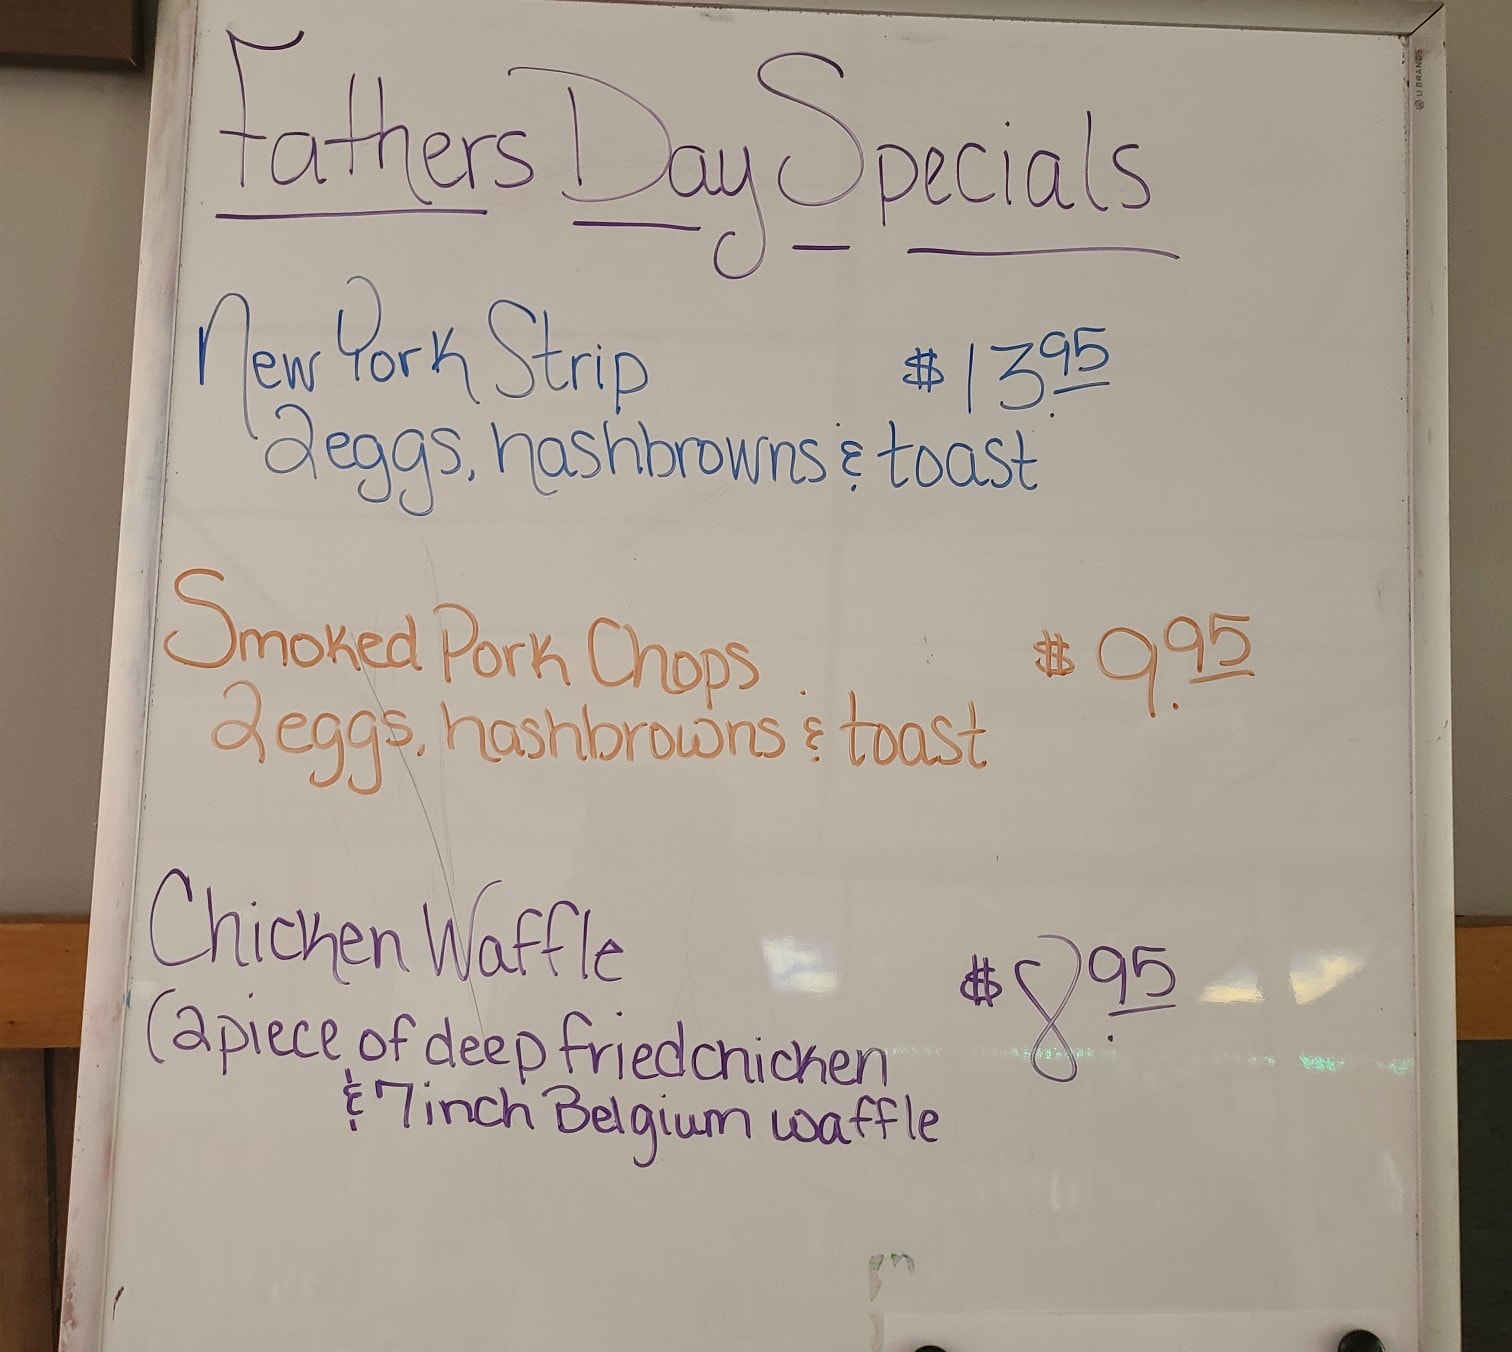 Fathers Day Specials
New York Strip $13.95
2 eggs, hashbrowns & toast
Smoked Pork Chops $9.95
2 eggs, hashbrowns & toast
Chicken Waffle $8.95
(2 piece of deep fried chicken
& 7 inch Belgium waffle
U BRANDS